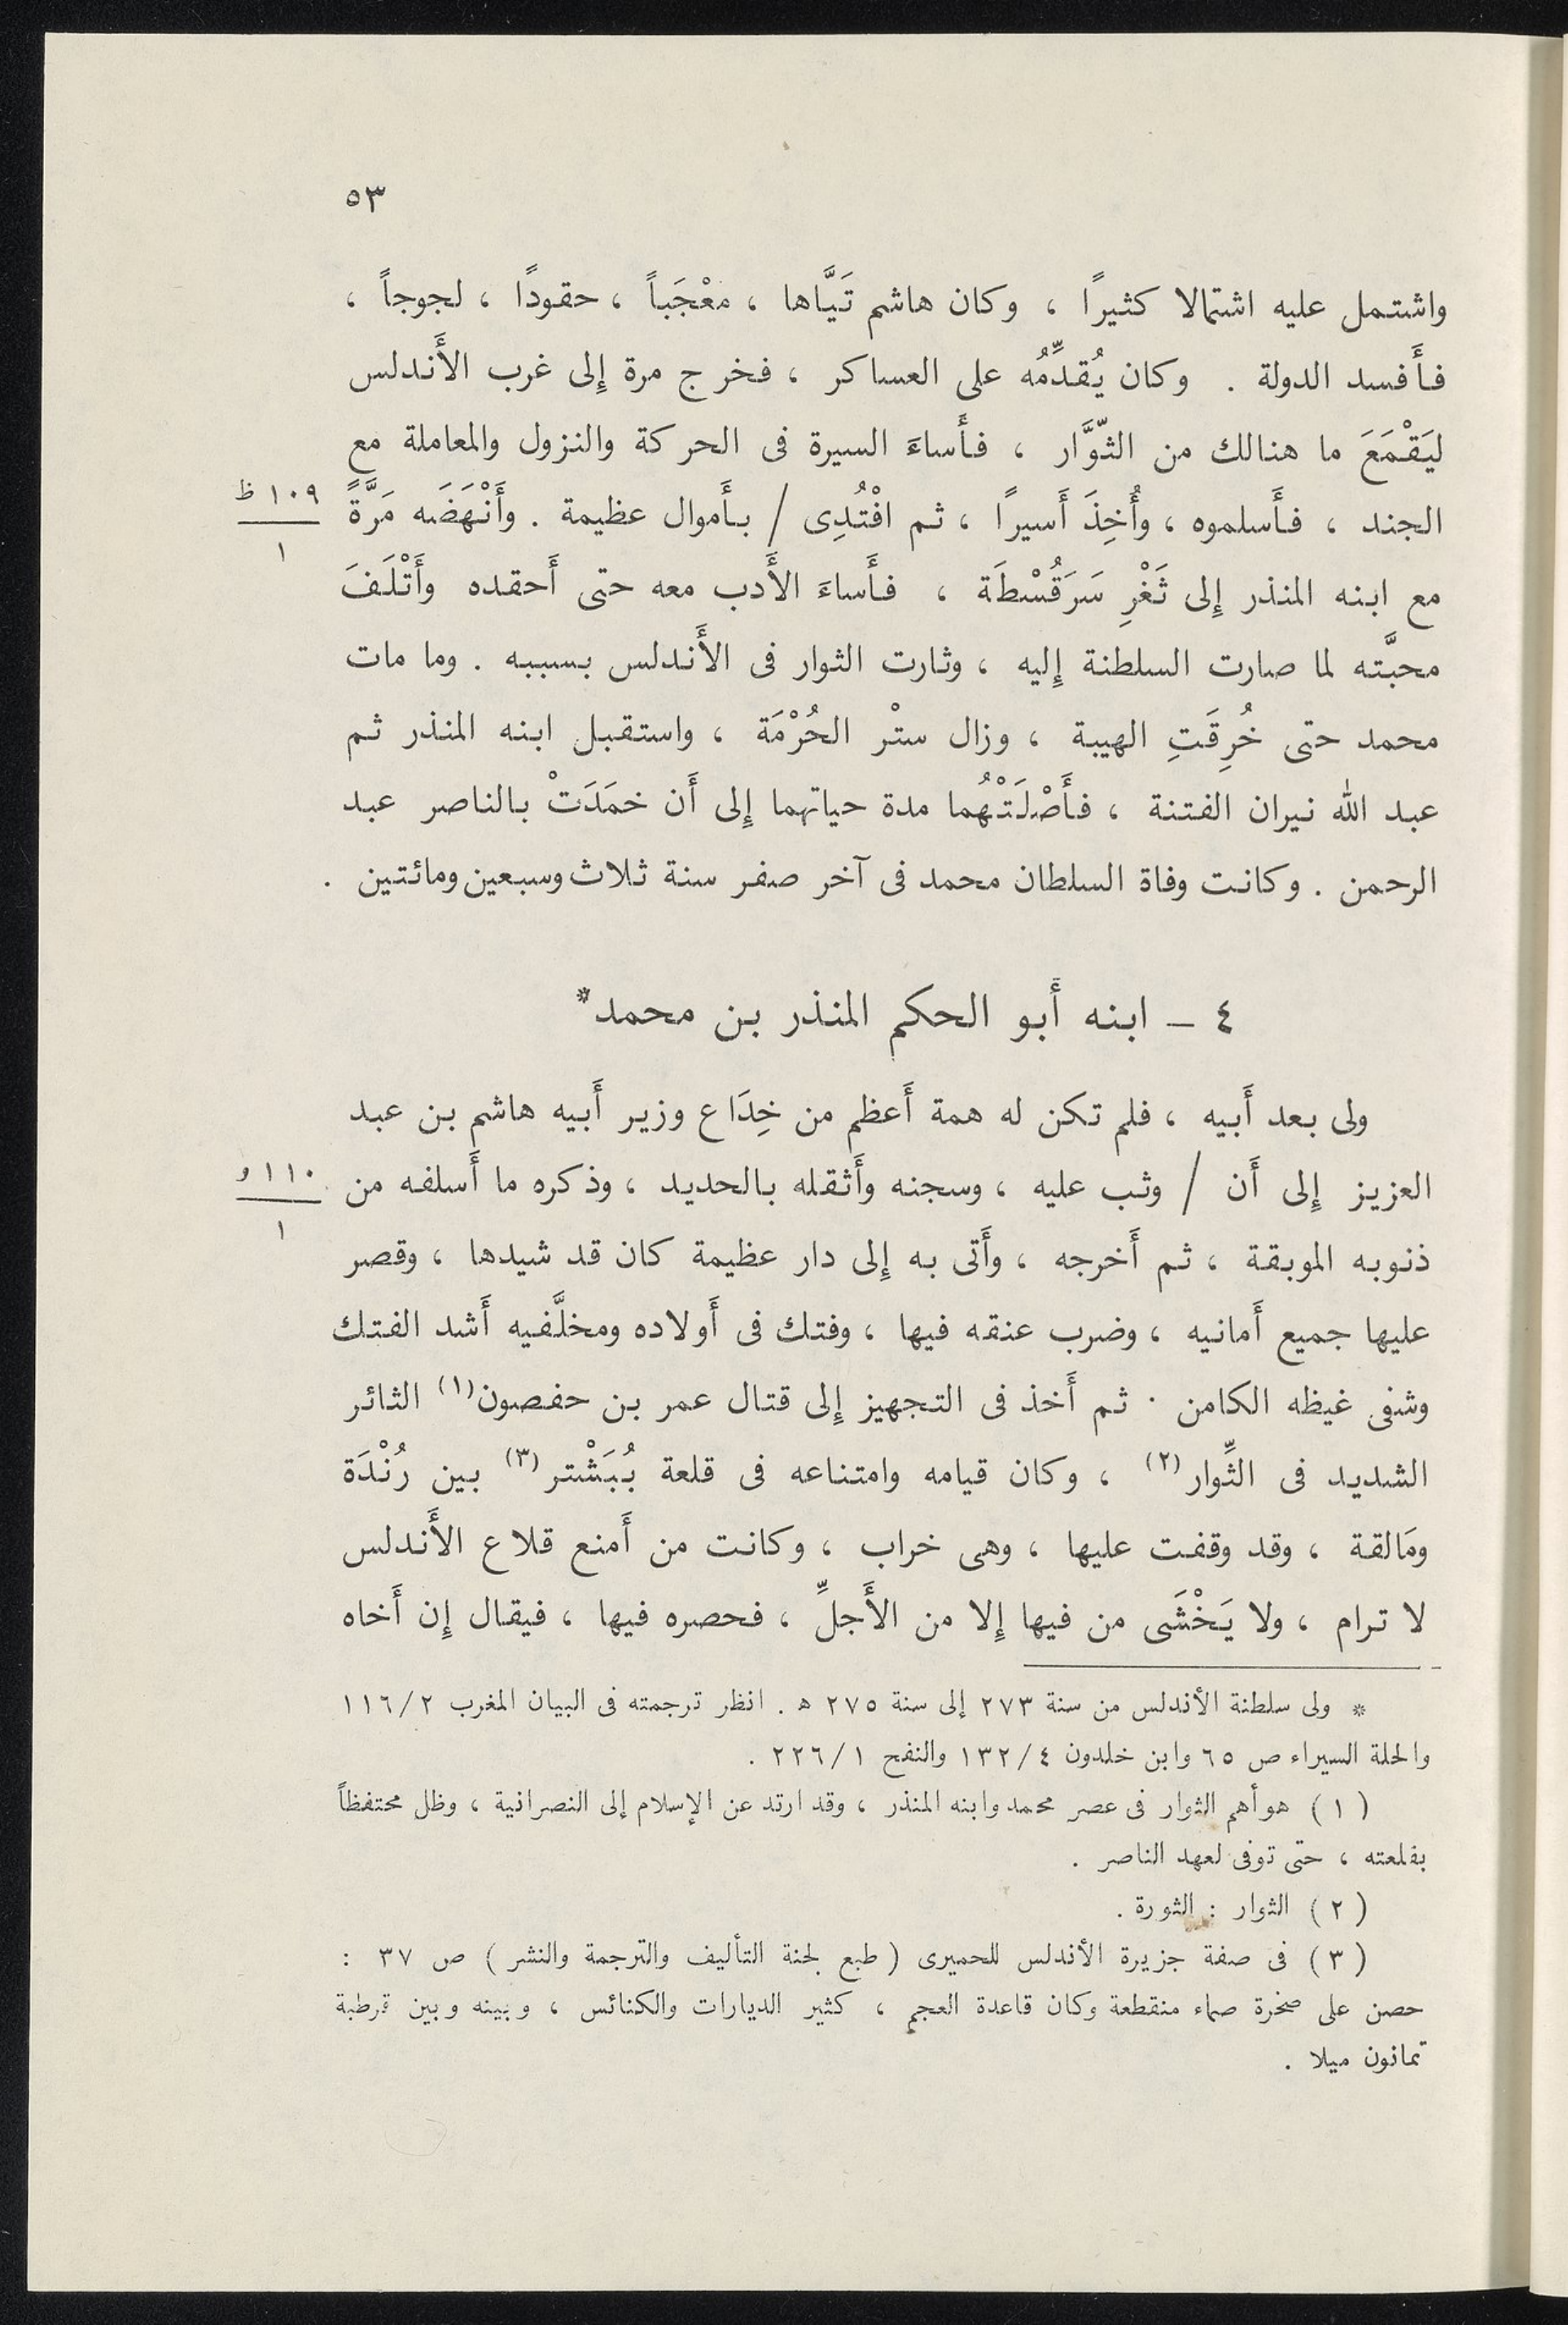 ٥٣
واشتمل عليه اشتمالا كثيرًا ، وكان هاشم تَيَّاها ، معْجَباً ، حقودًا ، لجوجاً ،
فأَفسد الدولة . وكان يُقدِّمُه على العساكر ، فخرج مرة إِلى غرب الأَندلس
ليَقْمَعَ ما هنالك من الثّوَّار ، فأَساءَ السيرة فى الحركة والنزول والمعاملة مع
الجند ، فأَسلموه ، وأُخِذَ أَسيرًا ، ثم افْتُدِى / بأَموال عظيمة . وأَنْهَضَه مَرَّةً
١٠٩ ظ
١
مع ابنه المنذر إِلى ثَغْرِ سَرَقُسْطَة ، فأَساءَ الأَدب معه حتى أَحقده وأَتْلَفَ
محبَّته لما صارت السلطنة إِليه ، وثارت الثوار فى الأَندلس بسببه . وما مات
محمد حتى خُرِقَتِ الهيبة ، وزال ستْر الحُرْمَة ، واستقبل ابنه المنذر ثم
عبد الله نيران الفتنة ، فأَصْلَتْهُما مدة حياتهما إِلى أَن خمَدَتْ بالناصر عبد
الرحمن . وكانت وفاة السلطان محمد فى آخر صفر سنة ثلاث وسبعين ومائتين .
٤ – ابنه أَبو الحكم المنذر بن محمد*
ولى بعد أَبيه ، فلم تكن له همة أَعظم من خِدَاع وزير أَبيه هاشم بن عبد
العزيز إِلى أَن / وثب عليه ، وسجنه وأَثقله بالحديد ، وذكره ما أَسلفه من
١١٠ و
١
ذنوبه الموبقة ، ثم أَخرجه ، وأَتى به إِلى دار عظيمة كان قد شيدها ، وقصر
عليها جميع أَمانيه ، وضرب عنقه فيها ، وفتك فى أَولاده ومخلَّفيه أَشد الفتك
وشفى غيظه الكامن . ثم أَخذ فى التجهيز إِلى قتال عمر بن حفصون(١) الثائر
الشديد فى الثِّوار(٢) ، وكان قيامه وامتناعه فى قلعة بُبَشْتر(٣) بين رُنْدَة
ومَالقة ، وقد وقفت عليها ، وهى خراب ، وكانت من أَمنع قلاع الأَندلس
لا ترام ، ولا يَخْشَى من فيها إِلا من الأَجلِّ ، فحصره فيها ، فيقال إِن أَخاه
* ولى سلطنة الأندلس من سنة ٢٧٣ إلى سنة ٢٧٥ ه . انظر ترجمته فى البيان المغرب ١١٦/٢
والحلة السيراء ص ٦٥ وابن خلدون ١٣٢/٤ والنفح ٢٢٦/١ .
( ١ ) هو أهم الثوار فى عصر محمد وابنه المنذر ، وقد ارتد عن الإسلام إلى النصرانية ، وظل محتفظاً
بقلعته ، حتى توفى لعهد الناصر .
( ٢ ) الثوار : الثورة .
( ٣ ) فى صفة جزيرة الأندلس للحميرى ( طبع لجنة التأليف والترجمة والنشر ) ص ٣٧ :
حصن على صخرة صماء منقطعة وكان قاعدة العجم ، كثير الديارات والكنائس ، وبينه وبين قرطبة
ثمانون ميلا .